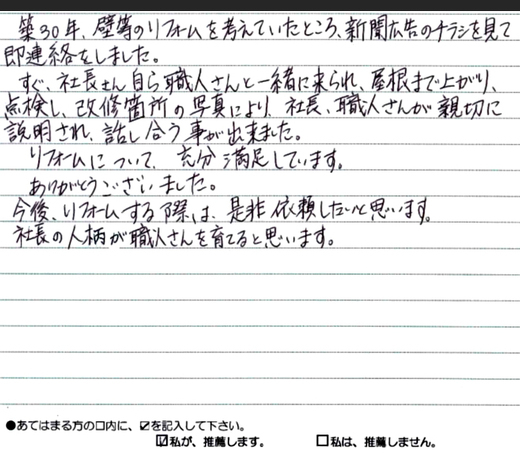 築30年、壁等のリフォームを考えていたところ、新聞広告のチラシを見て
即連絡をしました。
すぐ、社長さん自ら職人さんと一緒に来られ、屋根まで上がり、
点検し、改修箇所の写真により、社長、職人さんが親切に
説明され、話し合う事が出来ました。
リフォームについて、充分満足しています。
ありがとうございました。
今後、リフォームする際は、是非依頼したいと思います。
社長の人柄が職人さんを育てると思います。
●あてはまる方の口内に、☑を記入して下さい。
☑私が、推薦します。 □私は、推薦しません。